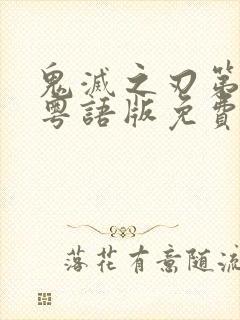 鬼滅之刃第
粵語版免費
落花有意随流